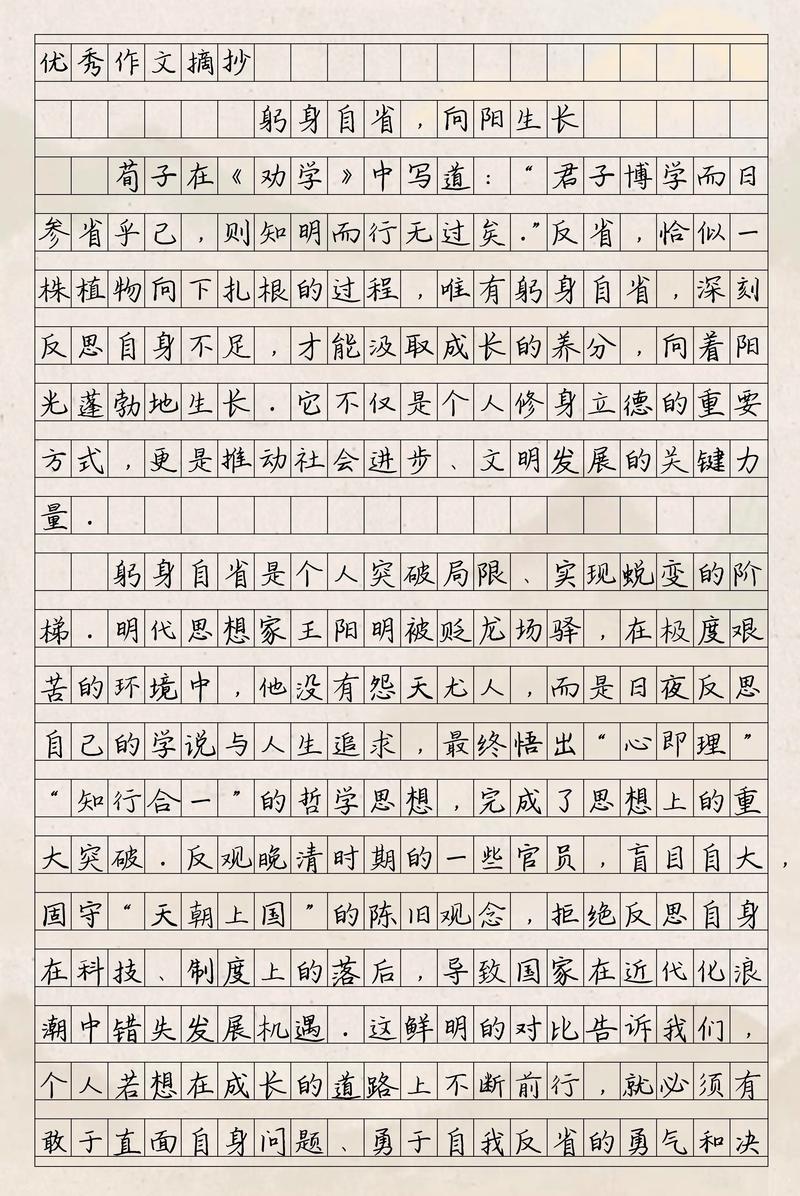 优秀作文摘抄
躬身自省，向阳生长
荀子在《劝学》中写道：“君子博学而日
参省乎己，则知明而行无过矣.”反省，恰似一
株植物向下扎根的过程，唯有躬身自省，深刻
反思自身不足，才能汲取成长的养分，向着阳
光蓬勃地生长.它不仅是个人修身立德的重要
方式，更是推动社会进步、文明发展的关键力
量.
躬身自省是个人突破局限、实现蜕变的阶
梯.明代思想家王阳明被贬龙场驿，在极度艰
苦的环境中，他没有怨天尤人，而是日夜反思
自己的学说与人生追求，最终悟出“心即理”
“知行合一”的哲学思想，完成了思想上的重
大突破.反观晚清时期的一些官员，盲目自大，
固守“天朝上国”的陈旧观念，拒绝反思自身
在科技、制度上的落后，导致国家在近代化浪
潮中错失发展机遇.这鲜明的对比告诉我们，
个人若想在成长的道路上不断前行，就必须有
敢于直面自身问题、勇于自我反省的勇气和决